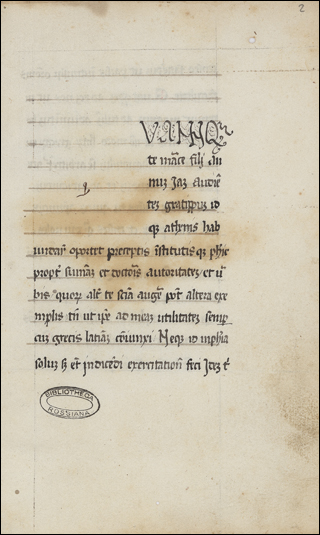 2
VAMQ
te marce filj an
num Jaz audie
tez gratippuz id
qz athenis hab
undare oportet preceptis institutis qz phie
propt sumaz et doctoris autoritatez et ur
bis quoꝝ alt te scia auge pot altera exe
mplis tn ut ipe ad meaz utilitatez semp
cuz grecis latina coniunxi Neqz id in phia
soluz sz et in dicendi exercitatione feci Jdez t
BIBLIOTHECA
ROSSIANA